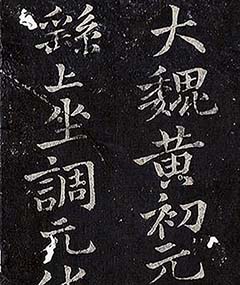 大魏黄初元
繇上坐調元